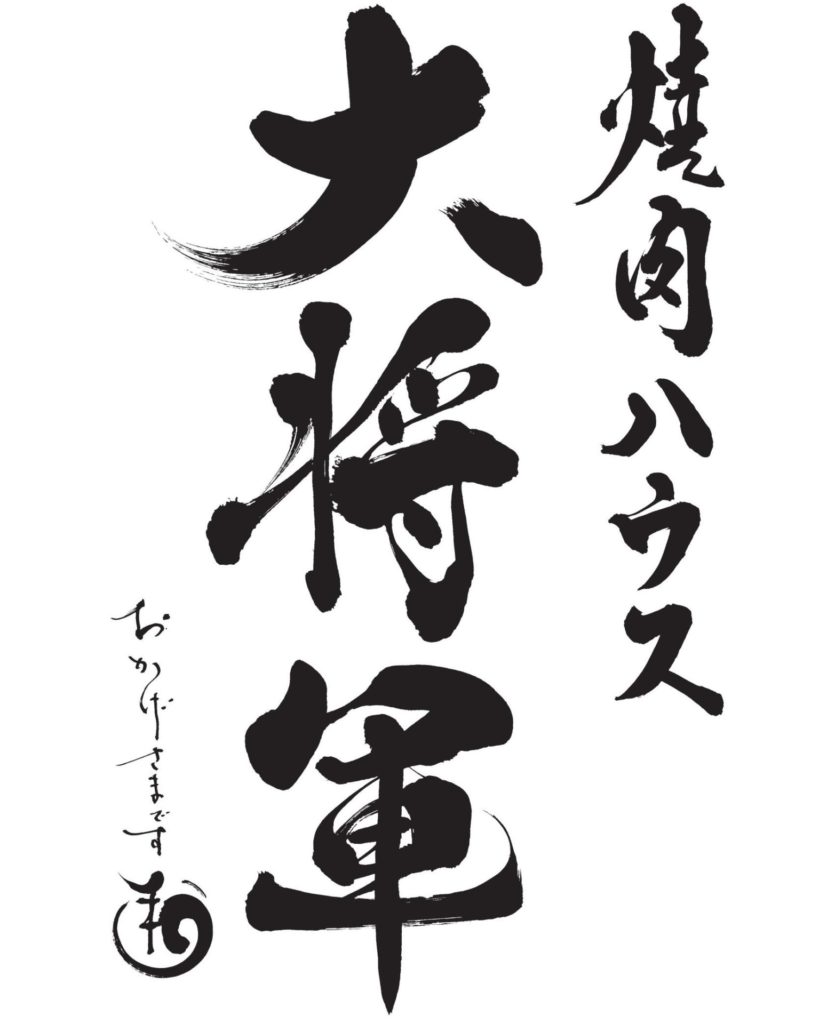 焼肉ハウス
大将軍
おかげさまです